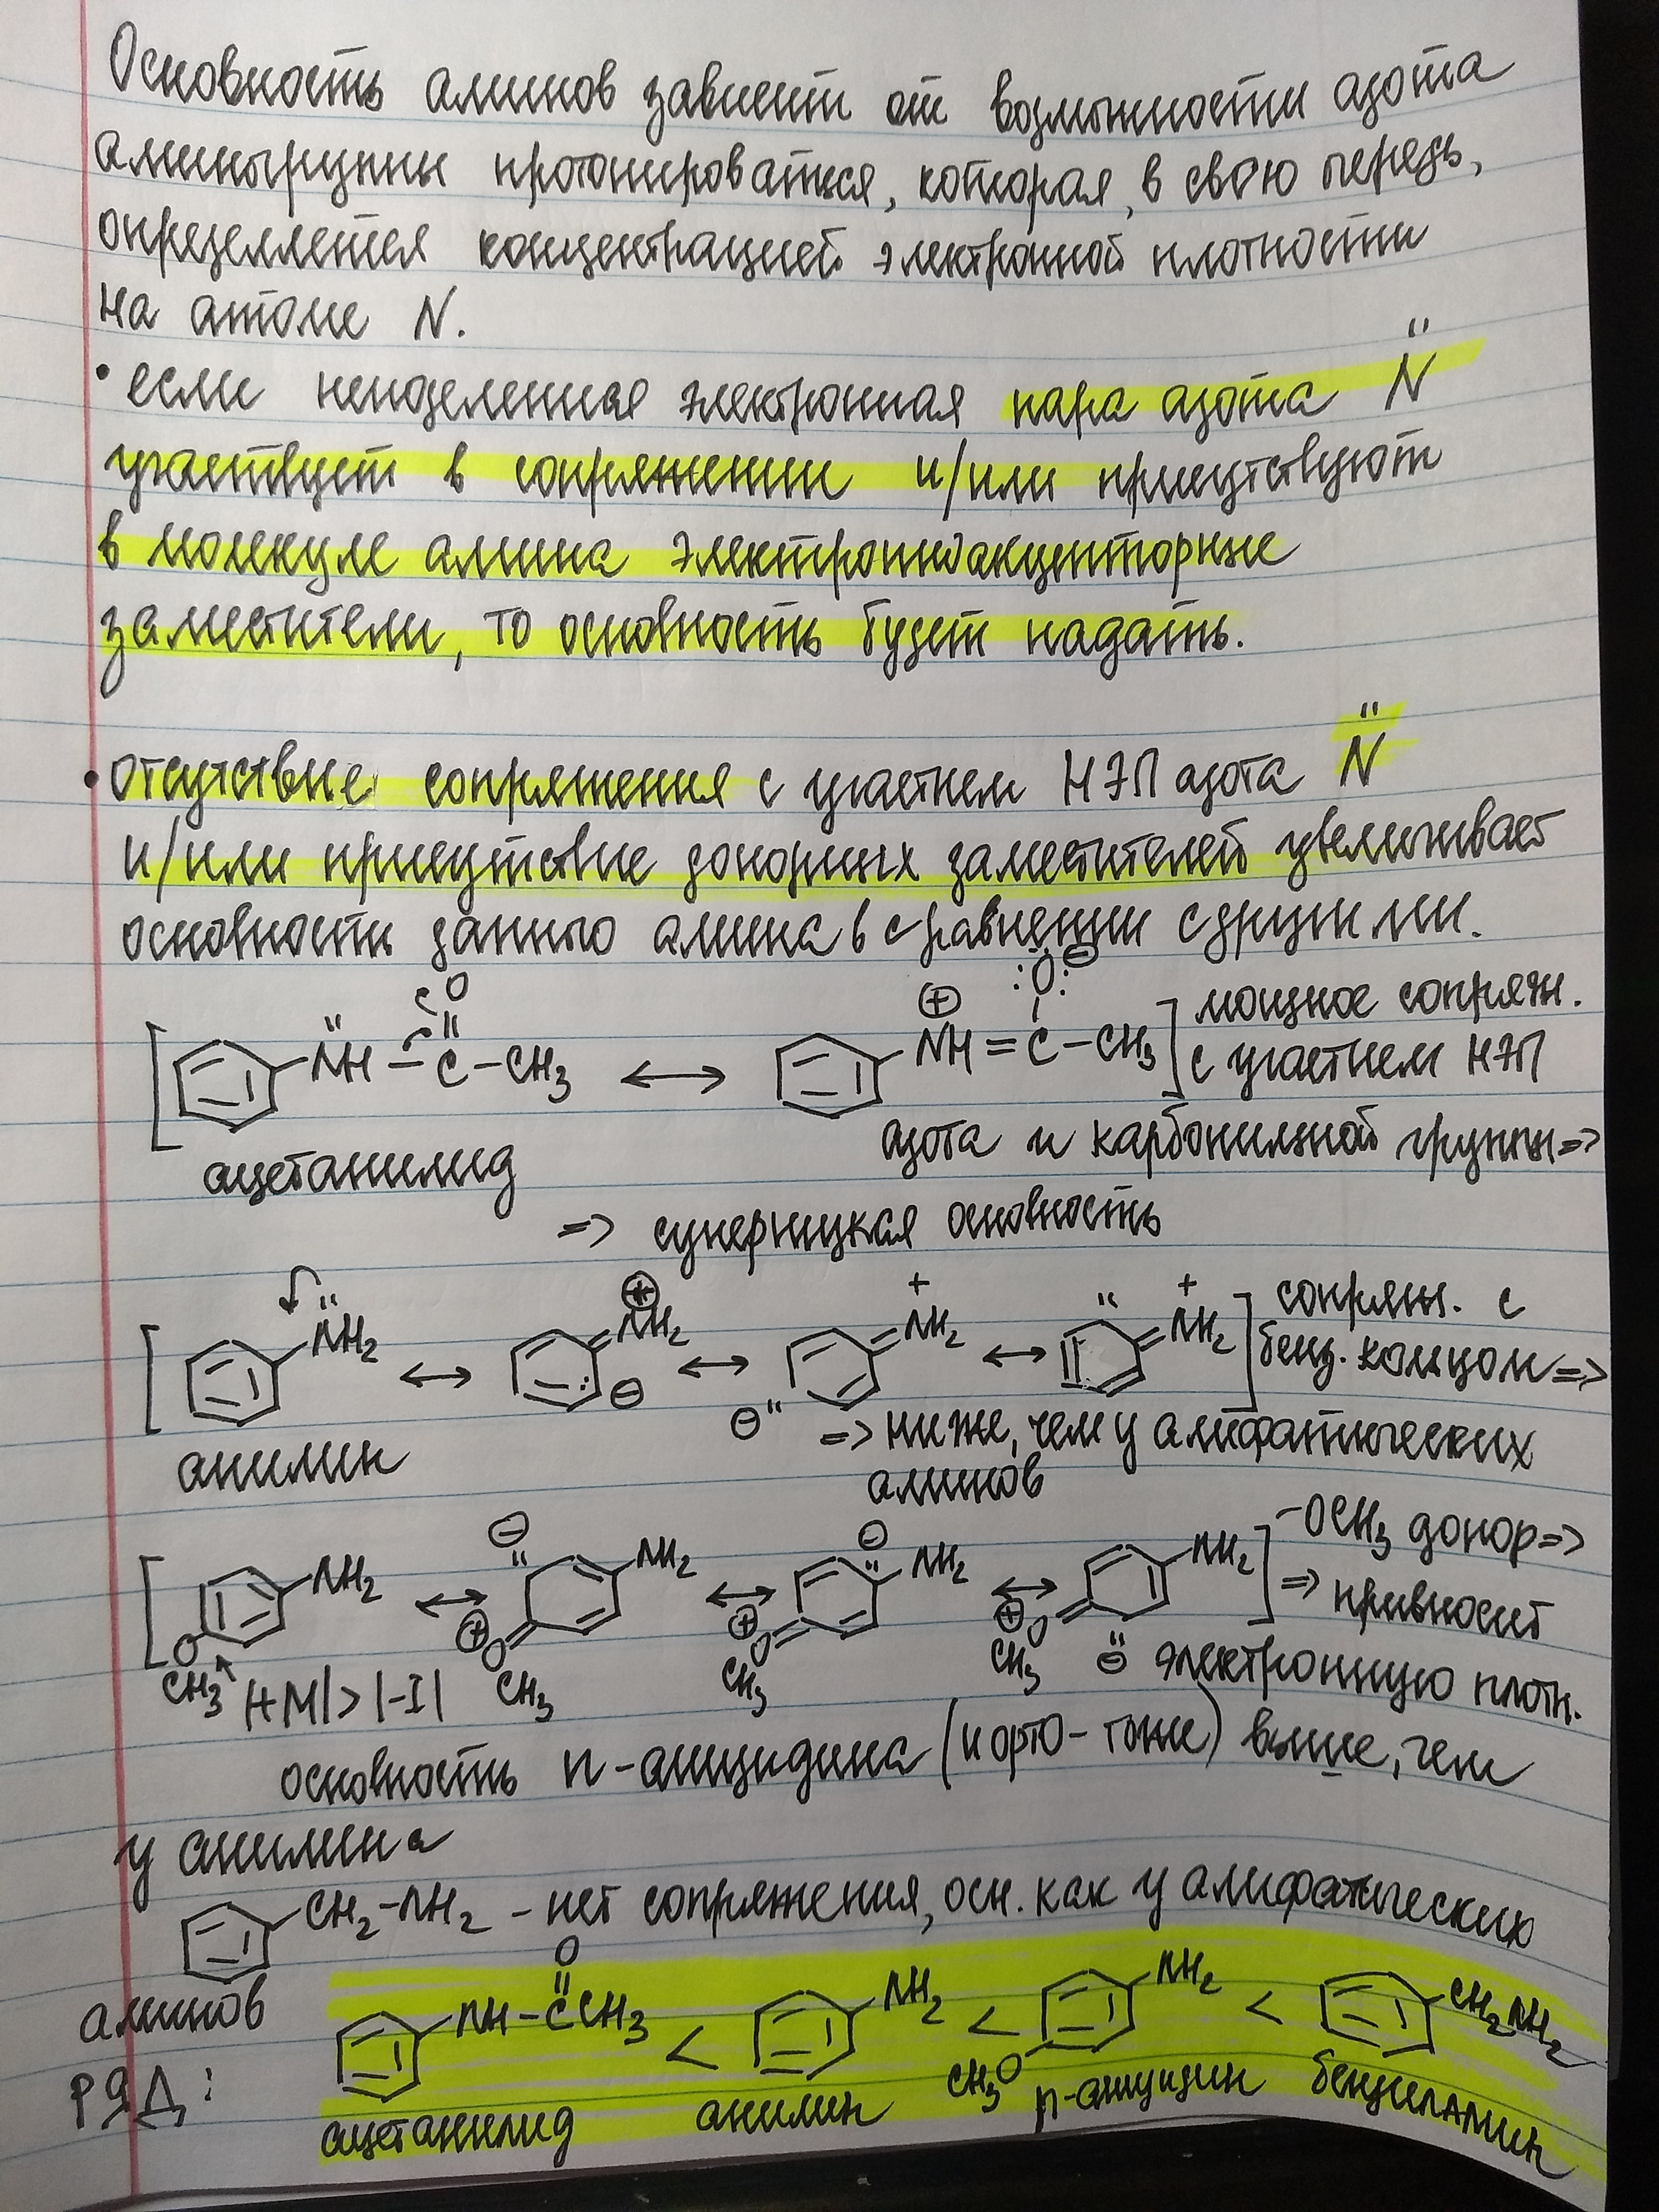 Основность аминов зависит от возможности азота
аминогруппы протонироваться, которая, в свою очередь,
определяется концентрацией электронной плотности
на атоме N.
• если неподеленная электронная пара азота N̈
участвует в сопряжении и/или присутствуют
в молекуле амина электронноакцепторные
заместители, то основность будет падать.
• отсутствие сопряжения с участием НЭП азота N̈
и/или присутствие донорных заместителей увеличивает
основность данного амина в сравнении с другими.
[ N̈H – C(=O) – CH3 ⟷ ⊕NH = C(–O⊖) – CH3 ] мощное сопряж.
с участием НЭП
ацетанилид азота и карбонильной группы =>
=> суперницкая основность
[ N̈H2 ⟷ ⊕NH2 ⊖ ⟷ +NH2 ⊖ ⟷ +NH2 ] сопряж. с
бенз. кольцом =>
анилин => ниже, чем у алифатических
аминов
[ NH2 OCH3 ⟷ ⊖ NH2 ⊕OCH3 ⟷ ⊖ NH2 ⊕OCH3 ⟷ NH2 ⊕OCH3 ⊖ ] -OCH3 донор =>
=> привносит
|+M| > |-I| электронную плотн.
основность п-анизидина (и орто- тоже) выше, чем
у анилина
CH2-NH2 – нет сопряжения, осн. как у алифатических
аминов
РЯД: NH-C(=O)CH3 < NH2 < NH2 CH3O < CH2NH2
ацетанилид анилин п-анизидин бензиламин